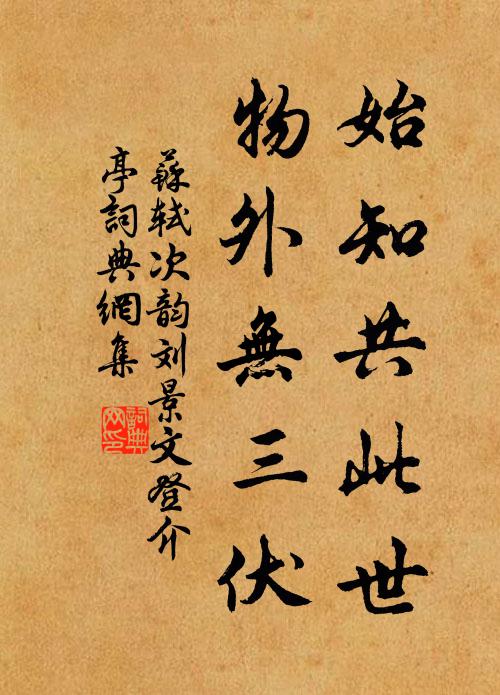 始知共此世
物外無三伏
蘇軾次韵刘景文登介
亭詞典網集
詞典网印